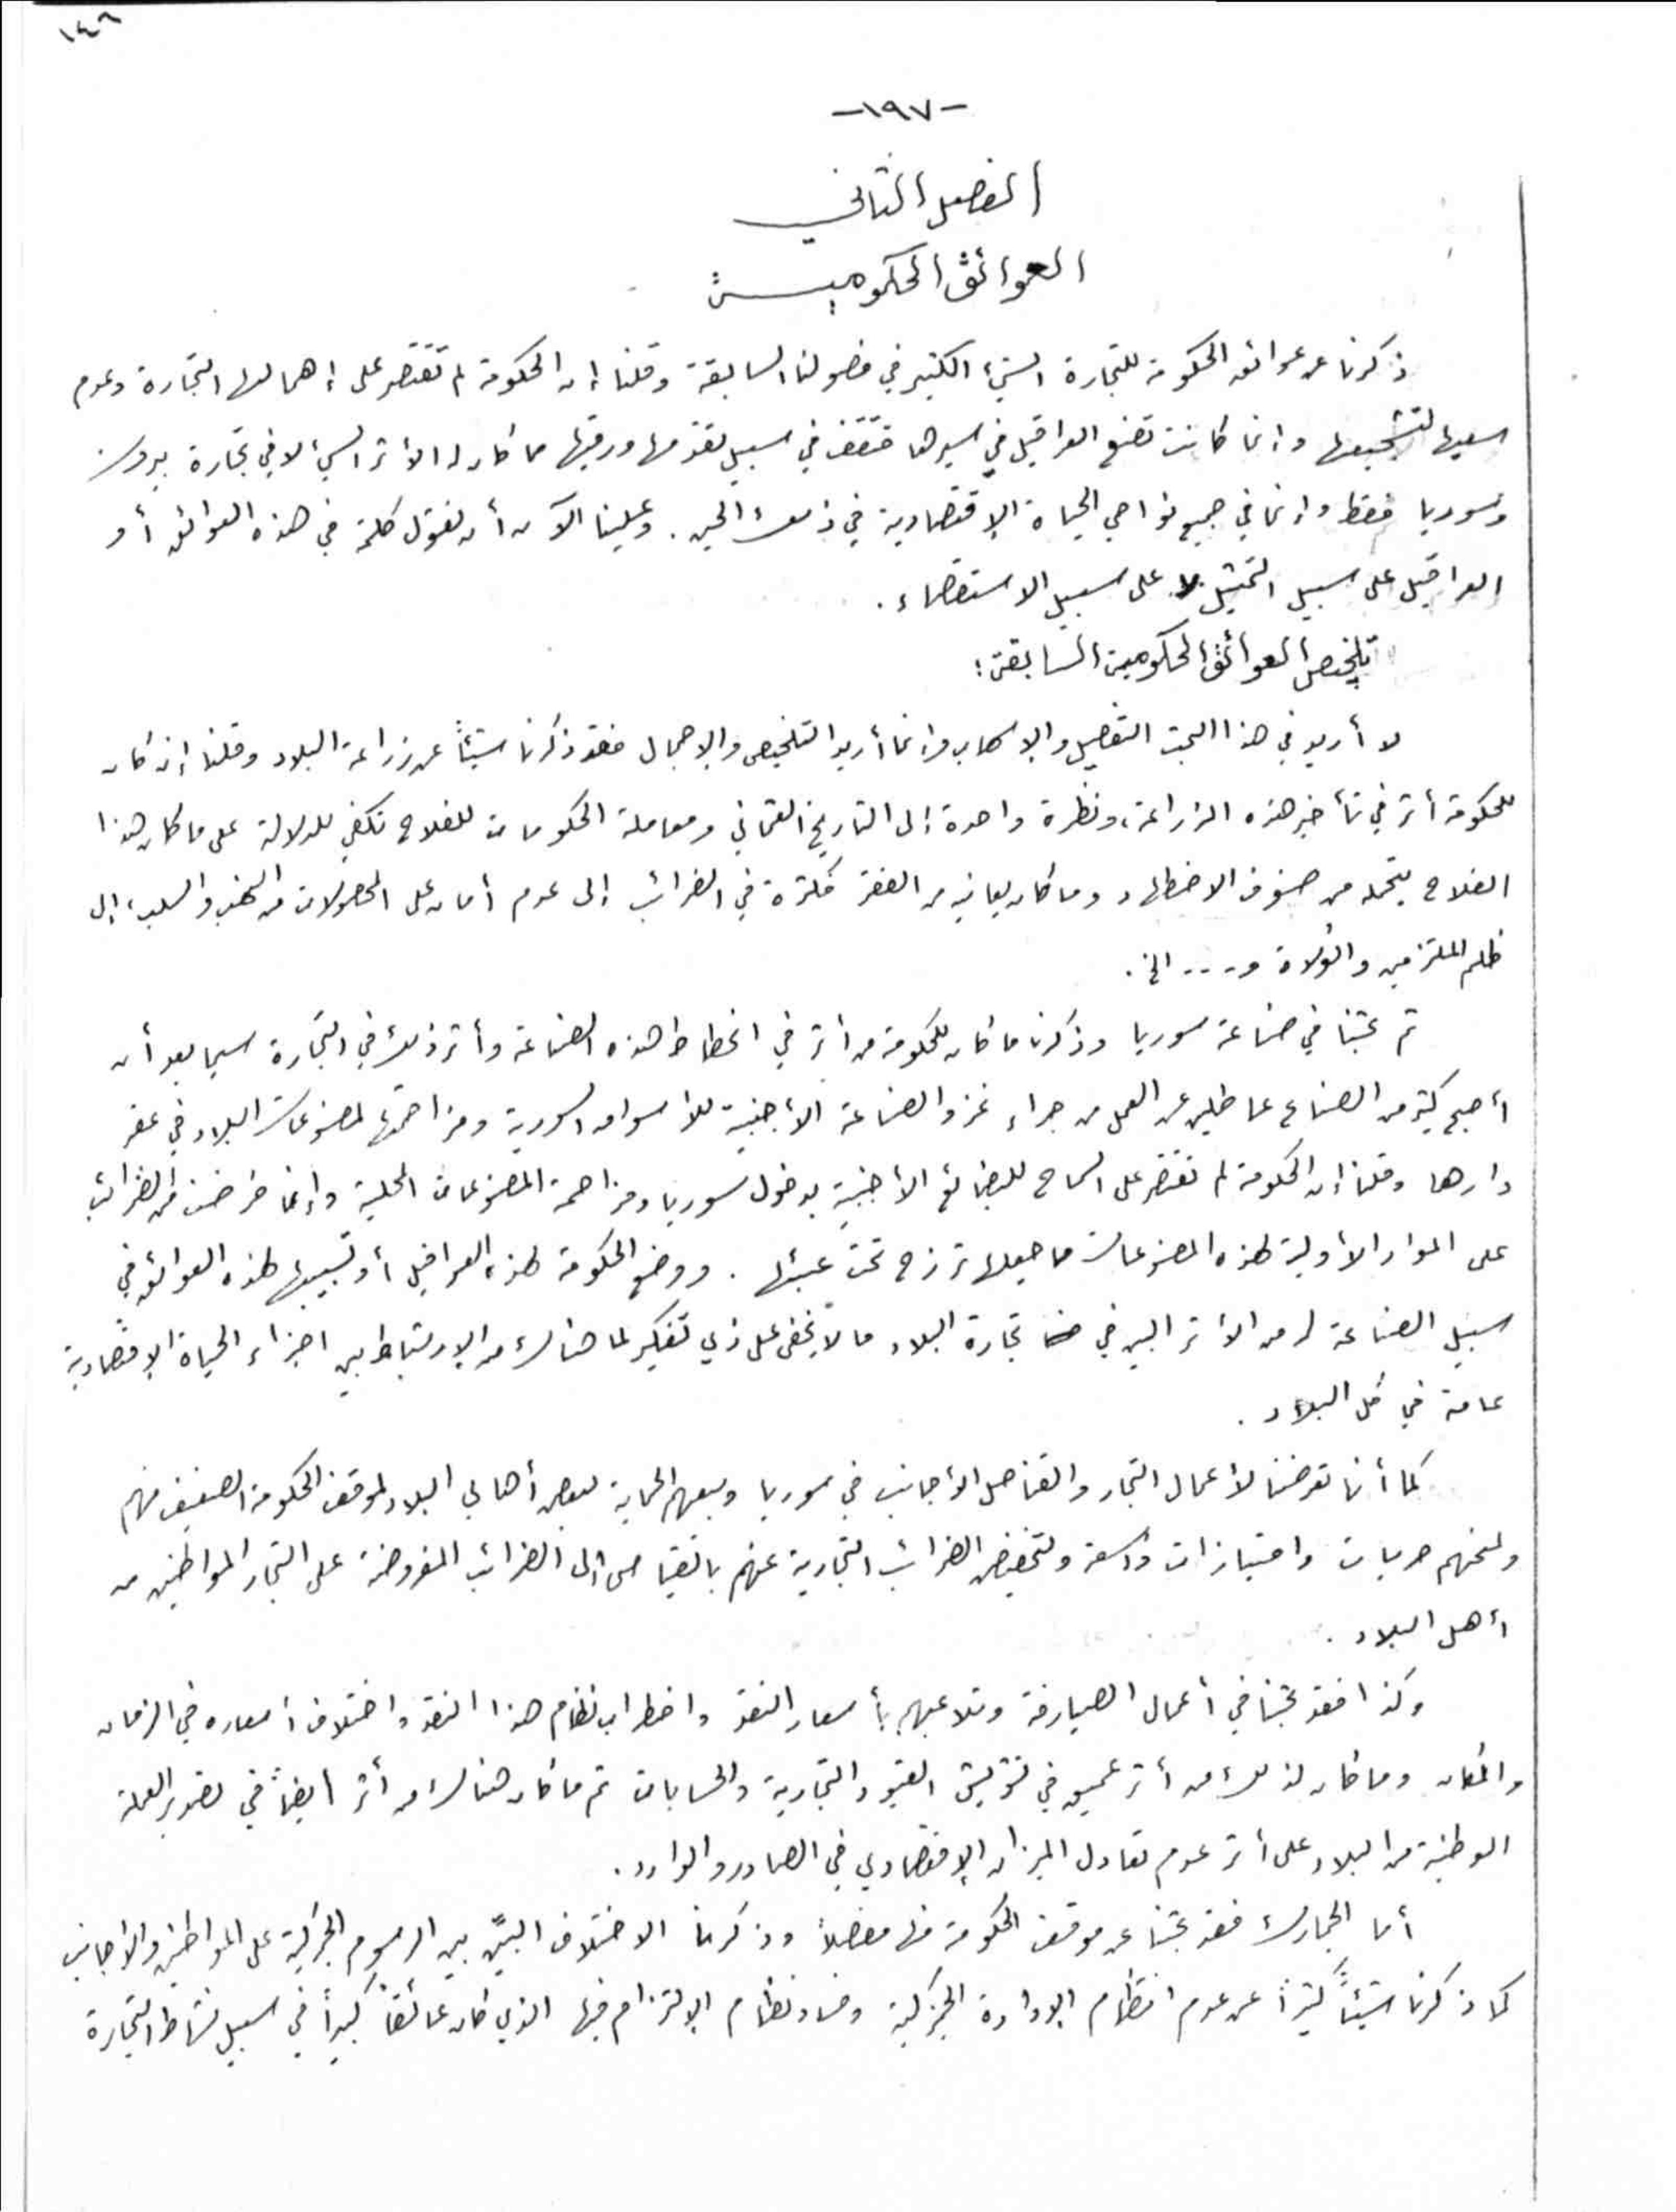 ١٤٦
-١٩٧-
الفصل الثاني
العوائق الحكومية
ذكرنا عن عوائق الحكومة للتجارة الشيء الكثير في فصولنا السابقة وقلنا إن الحكومة لم تقتصر على إهمالها التجارة وعدم
سعيها لتشجيعها وإنما كانت تضع العراقيل في سيرها فتقف في سبيل تقدمها ورقيها مما كان له الأثر السيء لا في تجارة بيروت
وسوريا فقط وإنما في جميع نواحي الحياة الإقتصادية في ذلك الحين. وعلينا الآن أن نقول كلمة في هذه العوائق أو
العراقيل على سبيل التمثيل لا على سبيل الاستقصاء.
تلخيص العوائق الحكومية السابقة:
لا أريد في هذا البحث التفصيل والإسهاب وإنما أريد التلخيص والإجمال فقد ذكرنا شيئاً عن زراعة البلاد وقلنا إنه كان
للحكومة أثر في تأخير هذه الزراعة، ونظرة واحدة إلى التاريخ العثماني ومعاملة الحكومات للفلاح تكفي للدلالة على ما كان هذا
الفلاح يتحمله من صنوف الاضطهاد وما كان يعانيه من الفقر فكثرة في الضرائب إلى عدم أمان على المحصولات من النهب والسلب، إلى
ظلم الملتزمين والولاة و.... الخ.
ثم بحثنا في صناعة سوريا وذكرنا ما كان للحكومة من أثر في انحطاط هذه الصناعة وأثر ذلك في التجارة سيما بعد أن
أصبح كثير من الصناع عاطلين عن العمل من جراء غزو الصناعة الأجنبية للأسواق السورية ومزاحمتها لمصنوعات البلاد في عقر
دارها وقلنا إن الحكومة لم تقتصر على السماح للبضائع الأجنبية بدخول سوريا ومزاحمة المصنوعات المحلية وإنما فرضت من الضرائب
على المواد الأولية لهذه المصنوعات ما جعلها ترزح تحت عبئها. ووضع الحكومة لهذه العراقيل أو تسبيبها لهذه العوائق في
سبيل الصناعة له من الأثر البين في تجارة البلاد ما لا يخفى على ذي تفكير لما هنالك من الإرتباط بين اجزاء الحياة الإقتصادية
عامة في كل البلاد.
كما أننا تعرضنا لأعمال التجار والقناصل الأجانب في سوريا وبيعهم الحماية لبعض أهالي البلاد لموقف الحكومة الضعيف منهم
ولمنحهم حريات وامتيازات واسعة ولتخفيض الضرائب التجارية عنهم بالقياس إلى الضرائب المفروضة على التجار المواطنين من
أهل البلاد.
وكذا فقد بحثنا في أعمال الصيارفة وتلاعبهم بأسعار النقد واضطراب نظام هذا النقد واختلاف أسعاره في الزمان
والمكان وما كان لذلك من أثر عميق في تشويش القيود التجارية والحسابات ثم ما كان هنالك من أثر ايضاً في تصدير العملة
الوطنية من البلاد على أثر عدم تعادل الميزان الإقتصادي في الصادر والوارد.
أما الجمارك فقد بحثنا عن موقف الحكومة منها مفصلاً وذكرنا الاختلاف البيّن بين الرسوم الجمركية على المواطنين والاجانب
كما ذكرنا شيئاً كثيراً عن عدم انتظام الإدارة الجمركية وفساد نظام الإلتزام فيها الذي كان عائقاً كبيراً في سبيل نشاط التجارة